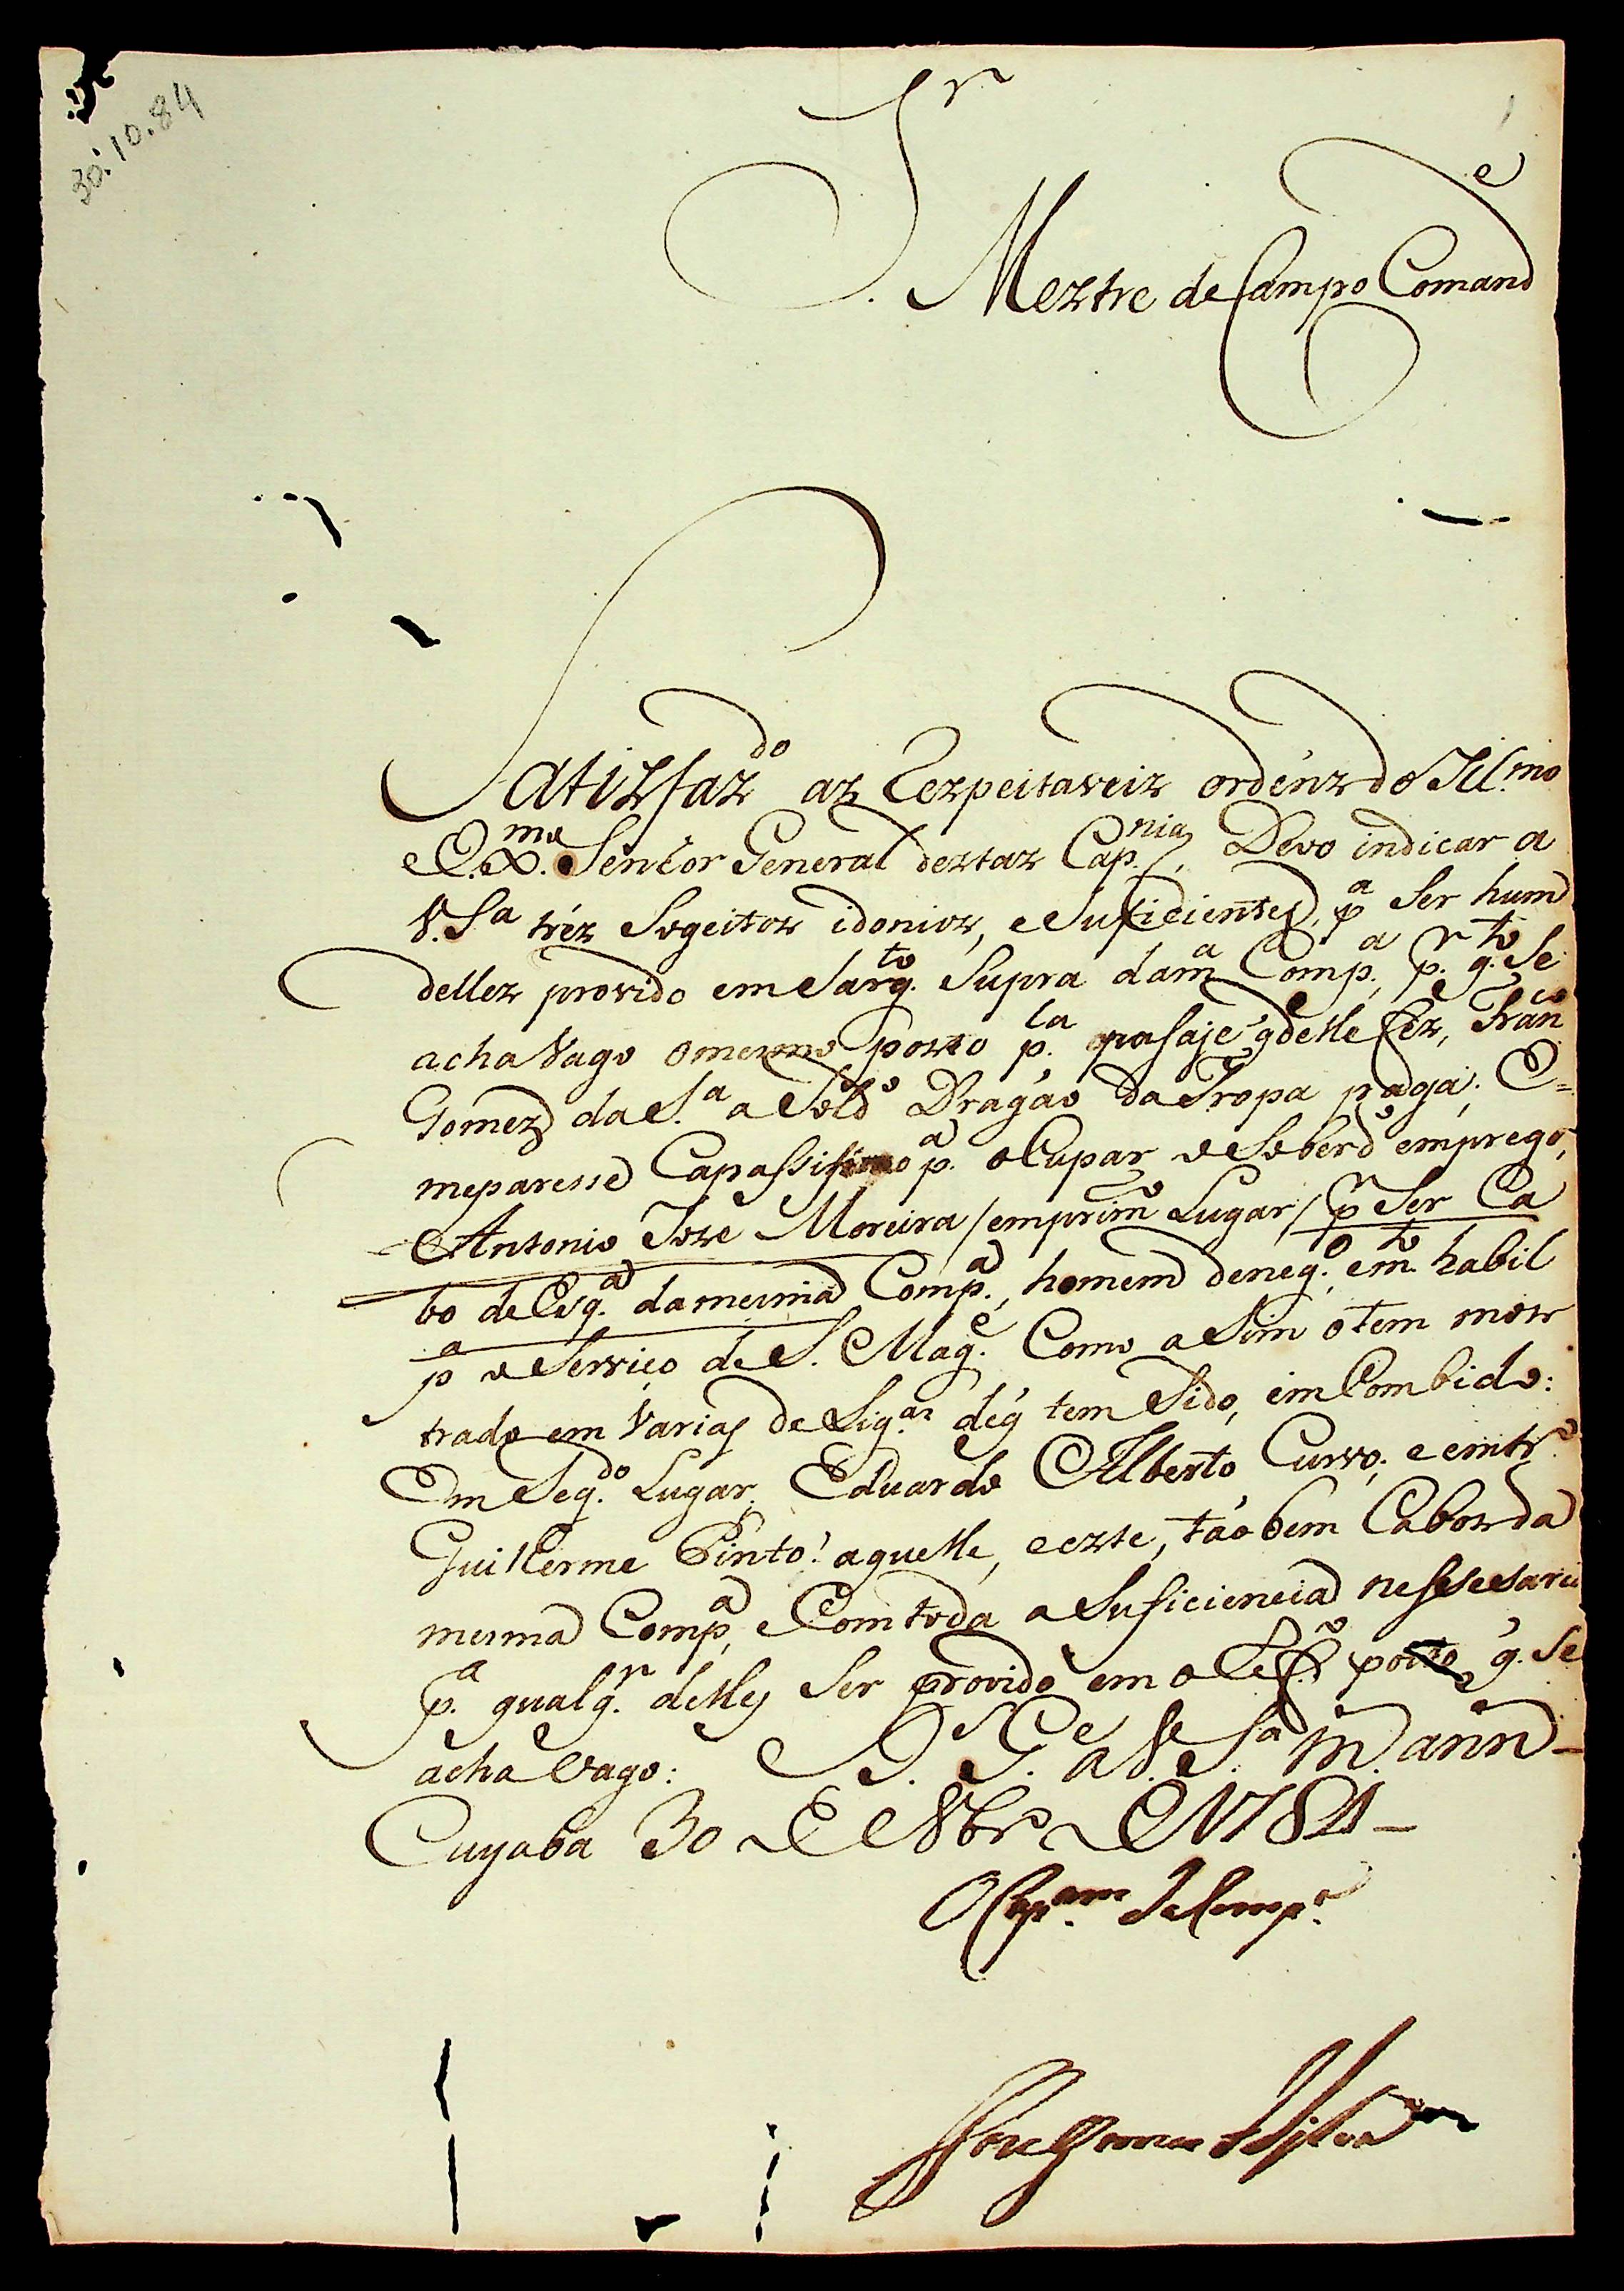 30.10.84
Sr
Meztre de Campo Comand.e
Satizfazdo az Rezpeitaveiz ordenz do Ill.mo
e Ex.mo Senhor General deztaz Cap.nias, Devo indicar a
V.Sa trez Sogeitoz idonioz, e Suficientes, pa Ser hum
dellez provido em Sargto Supra da ma Compa, p.r qto Se
acha Vago o mesmo pozto p.la pasaje q delle fez, Franco
Gomez da Sa a Soldo Dragão da Tropa paga; E=
me paresse Capassisimo pa ocupar o Soberdo emprego,
Antonio Joze Moreira / em primo Lugar / pr Ser Ca
bo de Esqa da mesma Compa, homem de nego, e mto habil
pa o Serviço de S. Mage Como asim o tem moz
trado em Varias deLigas de q tem Sido, imCombido:
Em Segdo Lugar, Eduardo Alberto Curvo; e em tro
Guilherme Pinto: aquelle, e ezte, tãobem Caboz da
mesma Compa, e Com toda a Suficiencia nessesaria
pa qualqr delles Ser provido em o Refo pozto q. Se
acha Vago: D. Ge a V. Sa m. ann
Cuyaba 30 de 8br.o de 1784
O Capam da Compa
Joze Gomes da Silva